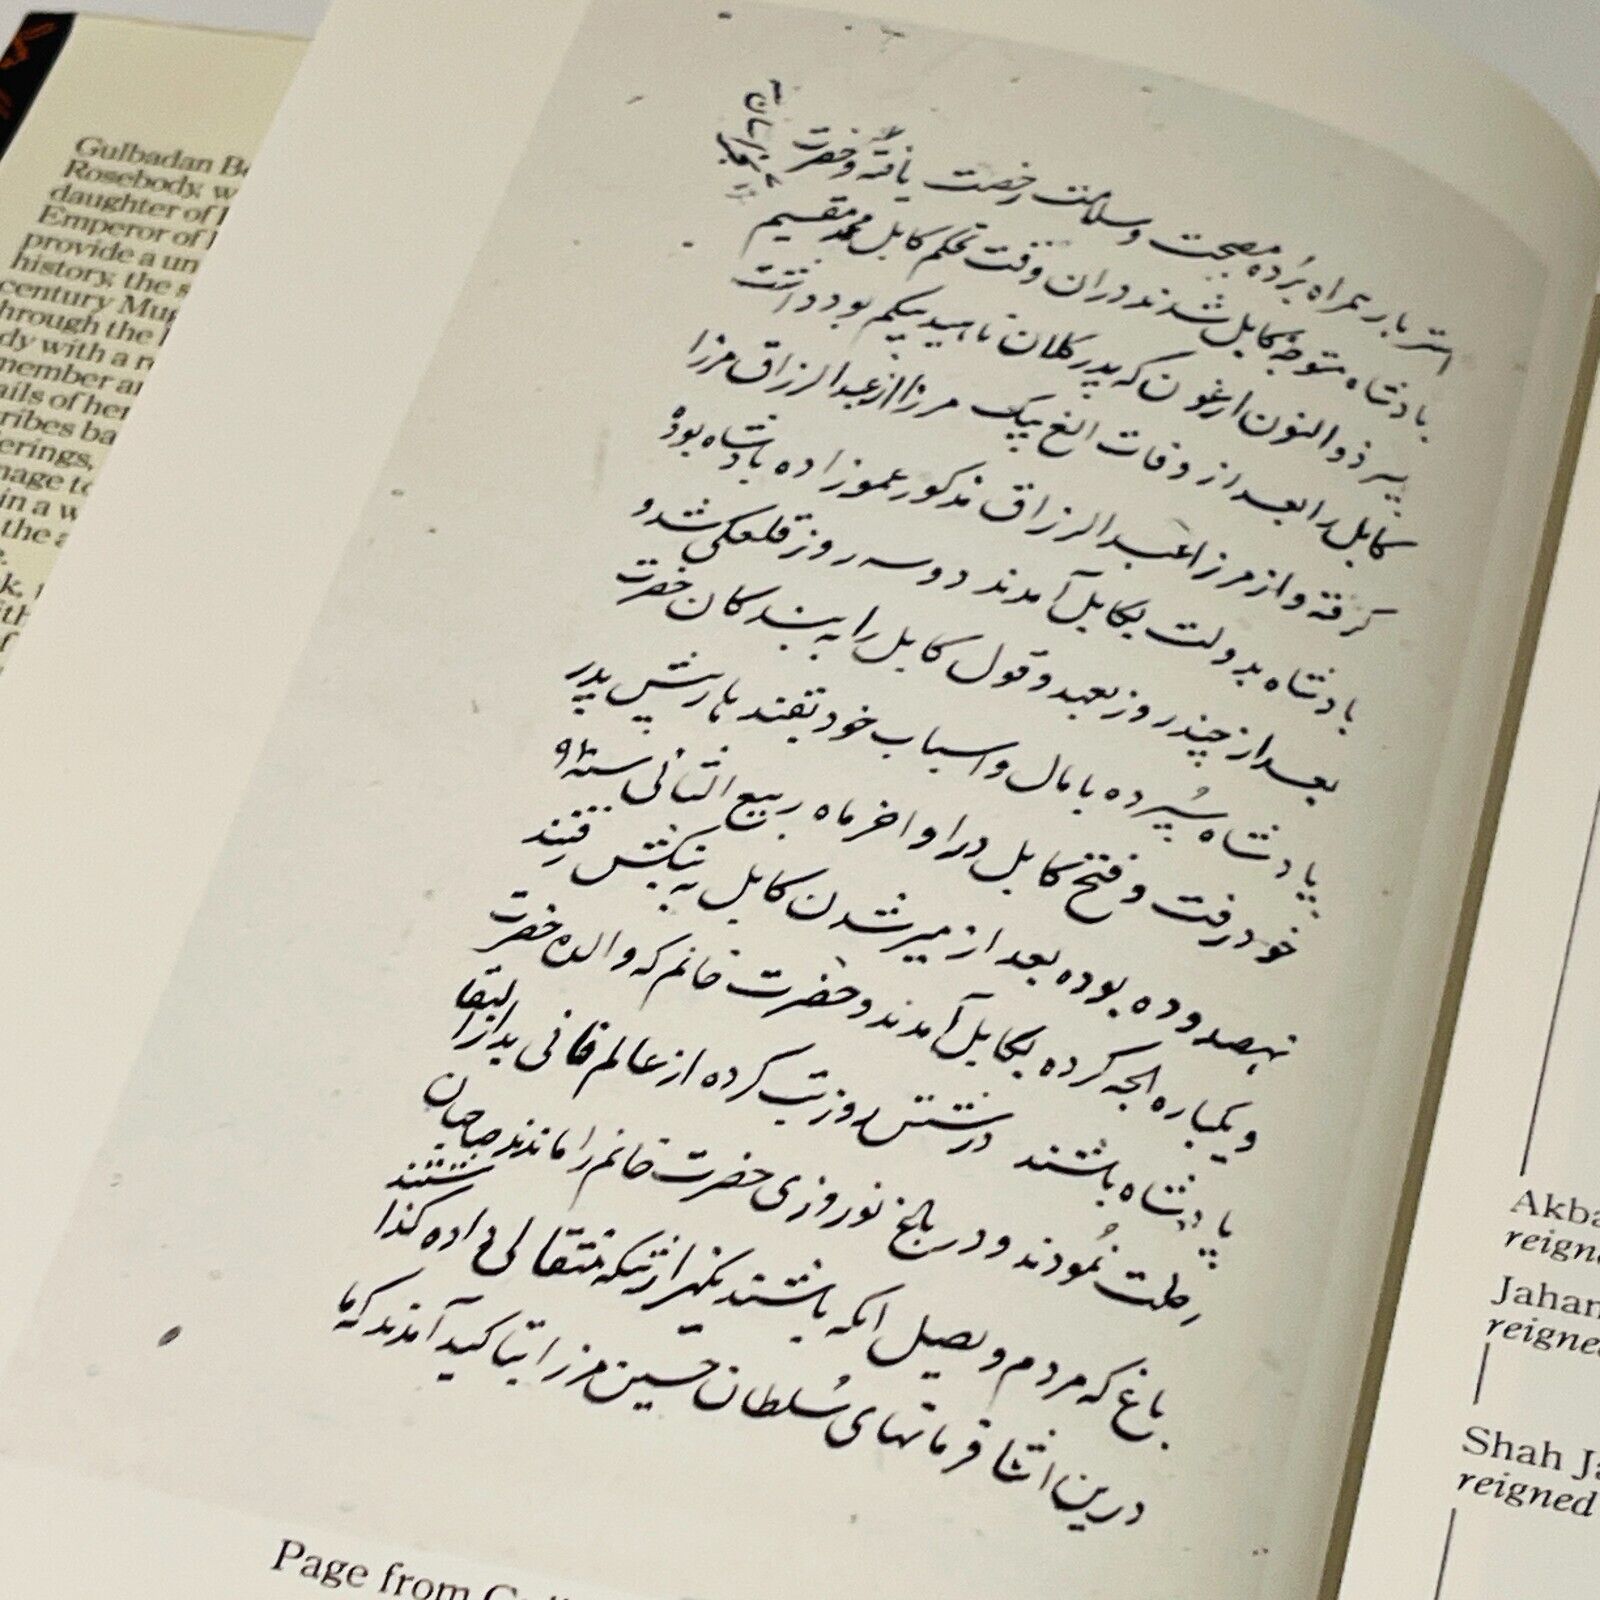 Gulbadan Be
Rosebody, w
daughter of
Emperor of
provide a un
history, the s
century Mug
hrough the
dy with a re
member a
ails of her
ribes ba
erings,
nage to
in a w
the a
e.
k,
ith
of
استر بار همراه برده بصحت و سلامت رخصت یافته و حضرت
بادشاه متوجه کابل شدند دران وقت حکم کابل محمد مقیم
پسر ذوالنون ارغون که پدر کلان ناهید بیگم بود داشت
کابل را بعد از وفات الغ بیگ مرزا از عبدالرزاق مرزا
گرفته و از مرزا عبدالرزاق مذکور عموزاده بادشاه بوده
بادشاه بدولت بکابل آمدند دو سه روز قلعگی شد و
بعد از چند روز بعهد و قول کابل را به بندگان حضرت
پادشاه سپرده با مال و اسباب خود بقندهار پیش پدر
خود رفت و فتح کابل در اواخر ماه ربیع الثانی سنه ۹۱۰
نهصد و ده بوده بعد از میر شدن کابل به بنگش رفتند
و یکباره الجه کرده بکابل آمدند و حضرت خانم که والده حضرت
پادشاه باشند در شش روز تب کرده از عالم فانی بدار البقا
رحلت نمودند و در باغ نوروزی حضرت خانم را ماندند صاحبان
باغ که مردم و بصیل اکه باشند یکهزار تنکه مثقالی داده گذاشتند
درین اثنا فرمانهای سلطان حسین مرزا بتاکید آمدند که ما
Page from
Akba
reigne
Jahan
reigne
Shah Ja
reigned